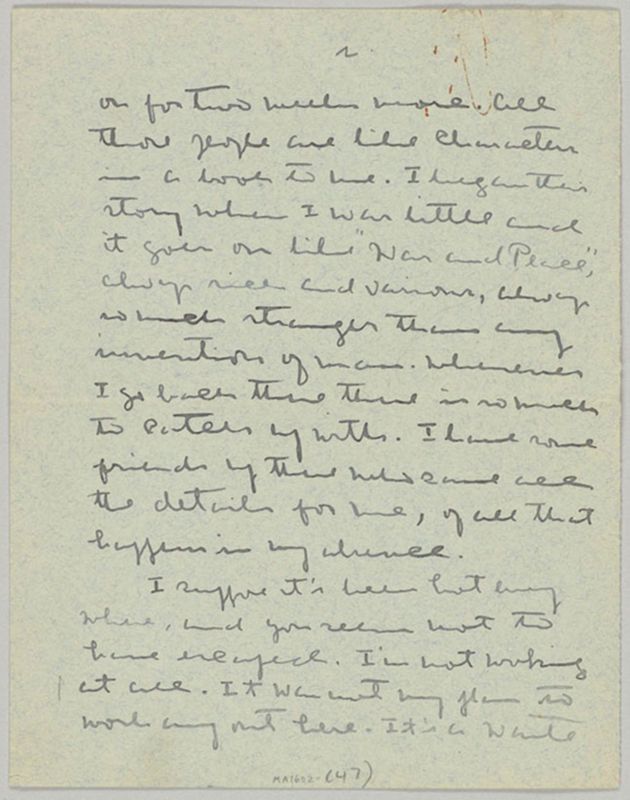 2.
on for two weeks more. All
those people are like characters
in a book to me. I began their
story when I was little and
it goes on like "War and Peace",
always rich and various, always
so much stranger than any
invention of man. Whenever
I go back there there is so much
to catch up with. I have some
friends up there who save all
the details for me, of all that
happens in my absence.
I suppose it's been hot any
where, and you seem not to
have escaped. I'm not working
at all. It was not my plan to
work any out here. It's a waste
MA1602-(47)